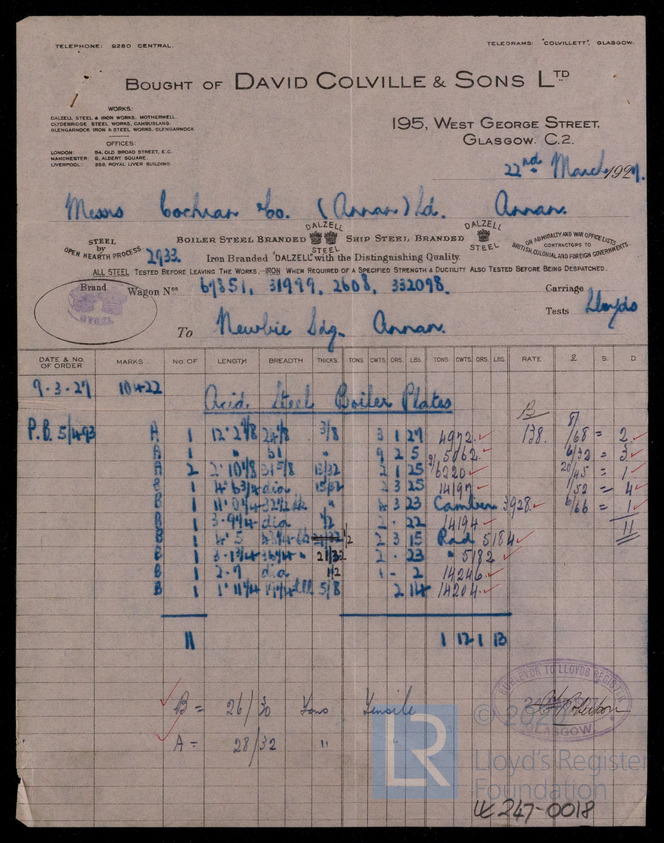 TELEPHONE: 9280 CENTRAL.
TELEGRAMS: "COLVILLETT", GLASGOW.
BOUGHT OF DAVID COLVILLE & SONS LTD
WORKS:
DALZELL STEEL & IRON WORKS, MOTHERWELL.
CLYDEBRIDGE STEEL WORKS, CAMBUSLANG.
GLENGARNOCK IRON & STEEL WORKS, GLENGARNOCK
OFFICES:
LONDON: 54, OLD BROAD STREET, E.C.
MANCHESTER: 6, ALBERT SQUARE.
LIVERPOOL: ROYAL LIVER BUILDING.
195, WEST GEORGE STREET,
GLASGOW. C.2.
22nd March 1927.
Messrs Cochran & Co. (Annan) Ld. Annan.
STEEL by OPEN HEARTH PROCESS
BOILER STEEL BRANDED DALZELL STEEL SHIP STEEL BRANDED DALZELL STEEL
ON ADMIRALTY AND WAR OFFICE LISTS
CONTRACTORS TO
BRITISH, COLONIAL AND FOREIGN GOVERNMENTS
2933. Iron Branded "DALZELL" with the Distinguishing Quality.
ALL STEEL TESTED BEFORE LEAVING THE WORKS.—IRON WHEN REQUIRED OF A SPECIFIED STRENGTH & DUCTILITY ALSO TESTED BEFORE BEING DESPATCHED.
Brand Wagon Nos 67351, 31999, 2608, 332098. Carriage
STEEL
Tests Lloyds
To Newbie Sdg. Annan.
DATE & NO. OF ORDER MARKS NO. OF LENGTH BREADTH THICKS. TONS CWTS. QRS. LBS. TONS CWTS. QRS. LBS. RATE £ S. D.
9-3-27 10422
Acid Steel Boiler Plates
B
P.B. 5/493 A 1 3/8 3 1 27 4972 138. /68 = 2
A 1 " 9 2 5 5062 = 3
A 2 13/32 2 1 25 6220 /45 = 1
B 1 dia 15/32 2 3 25 14197 /52 = 4
B 1 " 4 3 23 Camber 3928 /66 = 1
B 1 dia 1/2 2 - 22 14194 11
B 1 2 3 15 Rad 5184
B 1 21/32 2 - 23 " 5182
B 1 2-7 dia 1/2 1 - 2 14246
B 1 5/8 2 14 14204
11 1 12 1 13
B = 26/30 Tons Tensile
A = 28/32 "
SURVEYOR TO LLOYDS REGISTER
GLASGOW
LR
Lloyd's Register
Foundation
247-0018